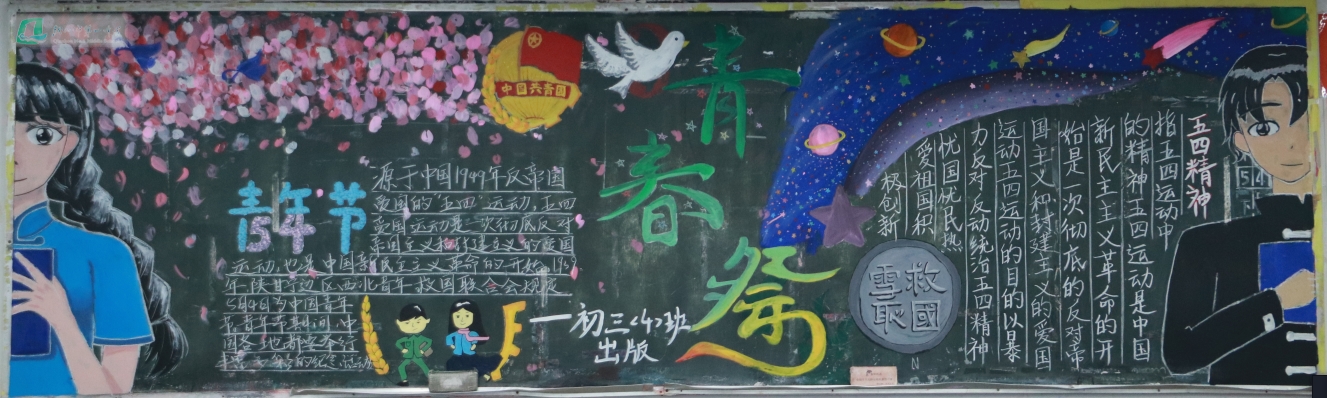 中国共青团
青春祭
青年节
54
源于中国1949年反帝国
爱国的"五四"运动,五四
爱国运动是一次彻底反对
帝国主义和封建主义的爱国
运动,也是中国新民主主义革命的开始,19
年陕甘宁边区西北青年救国联合会规定
5月4日为中国青年
节青年节期间,中
国各地都要举行
一初三〈4〉班
出版
五四精神
指五四运动中
的精神五四运动是中国
新民主主义革命的开
始是一次彻底的反对帝
国主义和封建主义的爱国
运动五四运动的目的以暴
力反对反动统治五四精神
忧国忧民热
爱祖国积
极创新
救國
雪耻
54
N